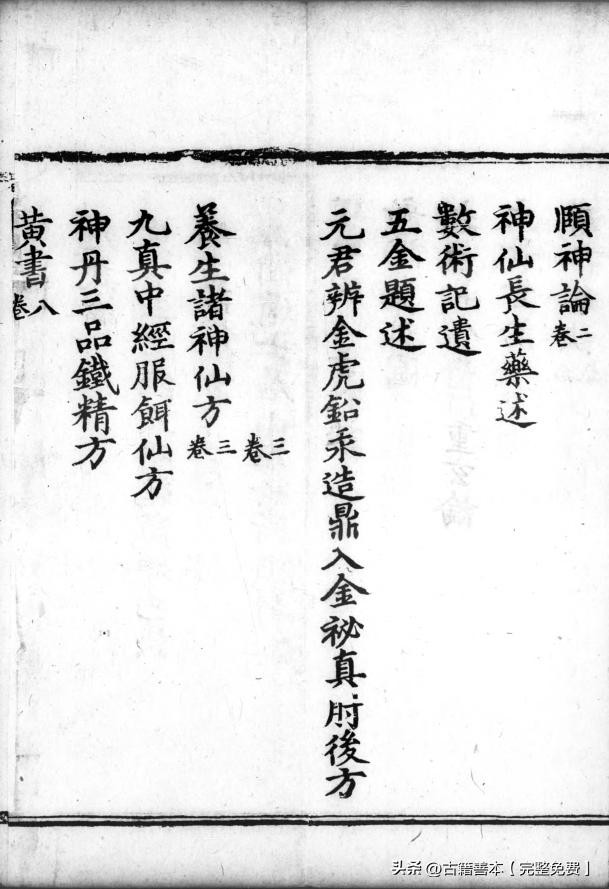 頤神論二卷
神仙長生藥述
數術記遺
五金題述
元君辨金虎鉛汞造鼎入金祕真肘後方
三卷
養生諸神仙方三卷
九真中經服餌仙方
神丹三品鐵精方
黃書八卷
头条 @古籍善本【完整免费】